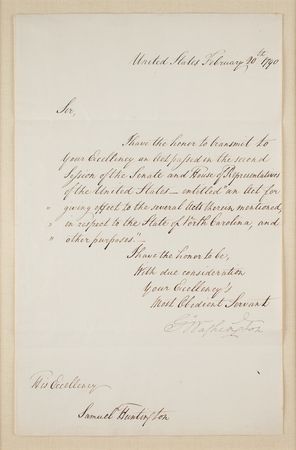 United States February 10th 1790
Sir,
I have the honor to transmit to
Your Excellency an Act passed in the second
Session of the Senate and House of Representatives
of the United States — entitled "an Act for
" giving effect to the several Acts therein mentioned,
" in respect to the State of North Carolina, and
" other purposes." —
I have the honor to be,
With due consideration
Your Excellency's
Most Obedient Servant
G. Washington
His Excellency
Samuel Huntington